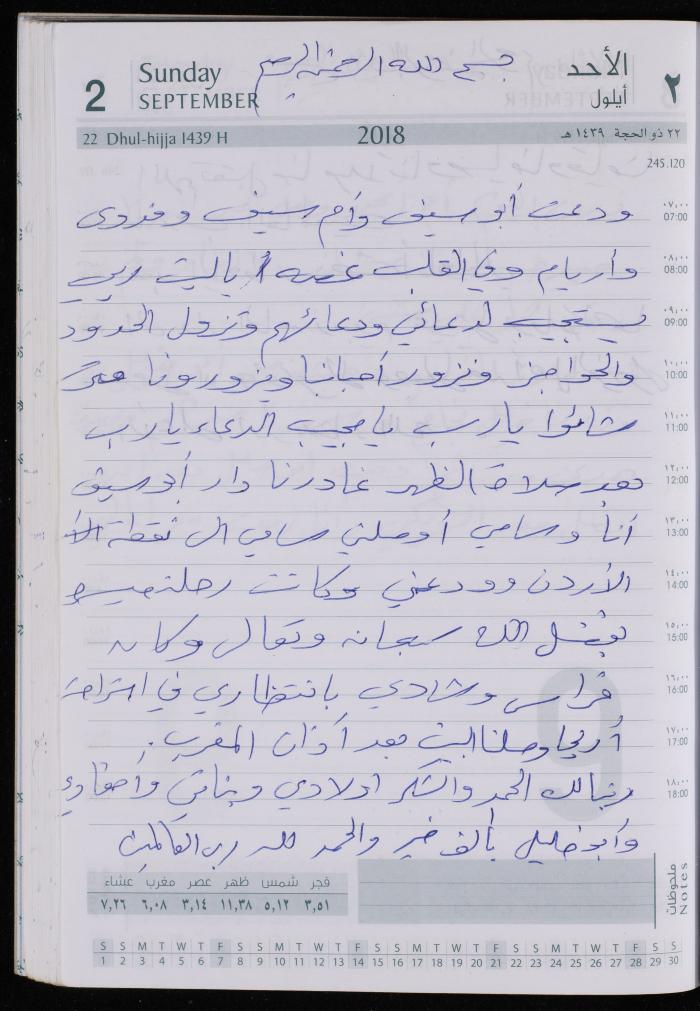 2
Sunday
SEPTEMBER
بسم الله الرحمن الرحيم
الأحد
أيلول
٢
22 Dhul-hijja 1439 H
2018
٢٢ ذو الحجة ١٤٣٩ هـ
245.120
٠٧,٠٠
07:00
ودعت أبو سيف وأم سيف وفدوى
٠٨,٠٠
08:00
وأريام وفي القلب غصه يا ليت ربي
٠٩,٠٠
09:00
يستجيب لدعائي ودعائهم وتزول الحدود
١٠,٠٠
10:00
والحواجز ونزور أحبابنا ويزورونا متى
١١,٠٠
11:00
شاؤا يا رب يا مجيب الدعاء يا رب
١٢,٠٠
12:00
بعد صلاة الظهر غادرنا دار أبو سيف
١٣,٠٠
13:00
أنا وسامي أوصلني سامي الى نقطة
١٤,٠٠
14:00
الأردن وودعني وكانت رحلة ميسره
١٥,٠٠
15:00
بفضل الله سبحانه وتعالى وكان
١٦,٠٠
16:00
فراس وشادي بانتظاري في استراحة
١٧,٠٠
17:00
أريحا وصلنا البيت بعد أذان المغرب.
١٨,٠٠
18:00
ربنا لك الحمد والشكر اولادي وبناتي وأحفادي
وأبو خليل بألف خير والحمد لله رب العالمين
ملحوظات
Notes
فجر شمس ظهر عصر مغرب عشاء
٣,٥١ ٥,١٢ ١١,٣٨ ٣,١٤ ٦,٠٨ ٧,٢٦
S S M T W T F S S M T W T F S S M T W T F S S M T W T F S S
1 2 3 4 5 6 7 8 9 10 11 12 13 14 15 16 17 18 19 20 21 22 23 24 25 26 27 28 29 30
9